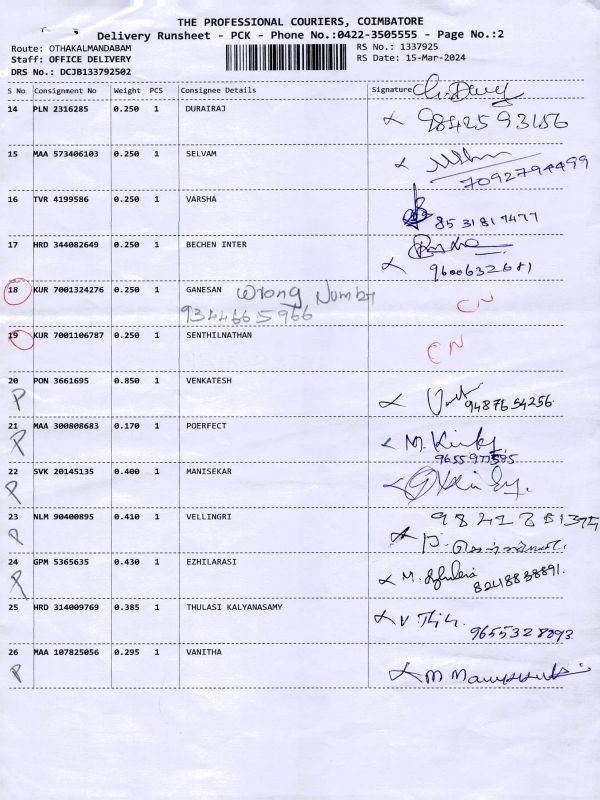 THE PROFESSIONAL COURIERS, COIMBATORE
Delivery Runsheet - PCK - Phone No.:0422-3505555 - Page No.:2
Route: OTHAKALMANDABAM
RS No.: 1337925
Staff: OFFICE DELIVERY
RS Date: 15-Mar-2024
DRS No.: DCJB133792502
S No Consignment No Weight PCS Consignee Details Signature
14 PLN 2316285 0.250 1 DURAIRAJ
15 MAA 573406103 0.250 1 SELVAM
7092794499
16 TVR 4199586 0.250 1 VARSHA
8531817477
17 HRD 344082649 0.250 1 BECHEN INTER
9600632681
18 KUR 7001324276 0.250 1 GANESAN Wrong Number CN
9344665966
19 KUR 7001106787 0.250 1 SENTHILNATHAN CN
20 PON 3661695 0.850 1 VENKATESH
P 9487654256
21 MAA 300808683 0.170 1 POERFECT
P
22 SVK 20145135 0.400 1 MANISEKAR
P
23 NLM 90400895 0.410 1 VELLINGRI
P
24 GPM 5365635 0.430 1 EZHILARASI
P 8248838891
25 HRD 314009769 0.385 1 THULASI KALYANASAMY
9655328093
26 MAA 107825056 0.295 1 VANITHA
P